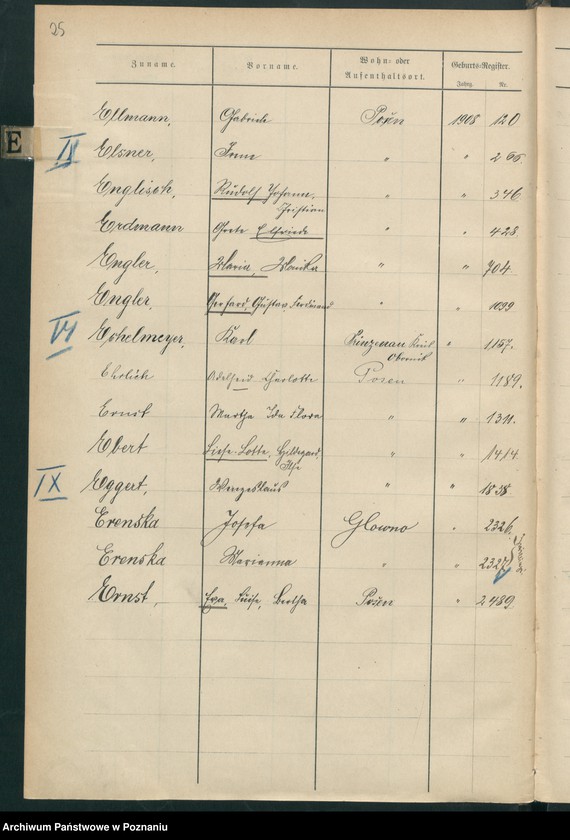 25
Zuname. Vorname. Wohn- oder Aufenthaltsort. Geburts-Register.
Jahrg. Nr.
E
Ellmann, Gabriele Posen 1908 120
II Elsner, Irma " " 266.
Englisch, Rudolf Johann " " 346
Christian
Erdmann Grete Elfriede " " 428.
Engler, Maria, Monika " " 704.
Engler, Gerhard, Gustav Ferdinand " " 1099
VI Eschelmeyer, Karl Kreis " 1157.
Obornik
Ehrlich Adelheid Charlotte Posen " 1189.
Ernst Martha Ida Flora " " 1311.
Ebert Liese-Lotte, Hildegard " " 1414.
Ilse
IX Eggert, Wenzeslaus " " 1838.
Erenska Josefa Glowno " 2326.
Erenska Marianna " " 2327
Ernst, Eva, Luise, Bertha Posen " 2489.
Archiwum Państwowe w Poznaniu